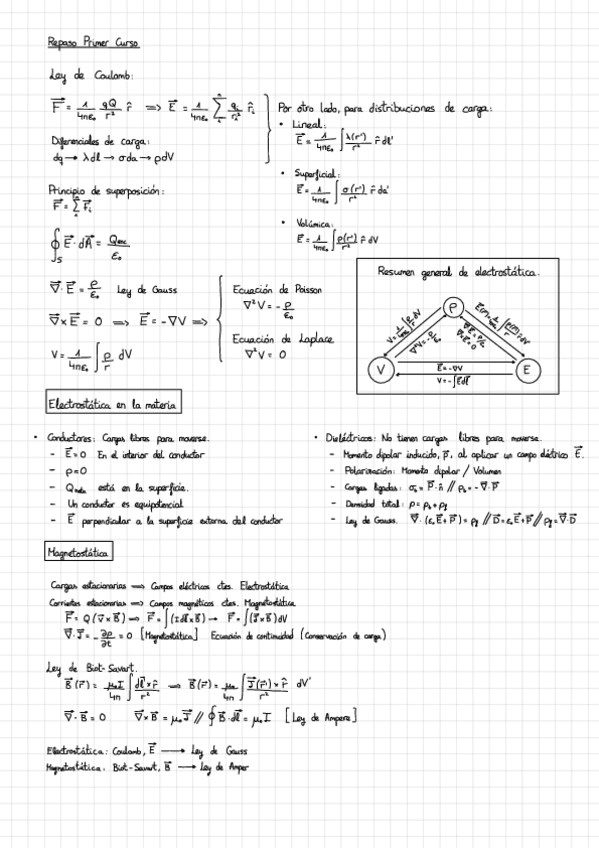 Repaso Primer Curso
Ley de Coulomb:
F⃗ = 1/4πε₀ qQ/r² r̂ ⟹ E⃗ = 1/4πε₀ Σ qᵢ/rᵢ² r̂ᵢ
Diferenciales de carga:
dq → λdl → σda → ρdV
Principio de superposición:
F⃗ = Σ F⃗ᵢ
∮_S E⃗·dA⃗ = Qenc/ε₀
Por otro lado, para distribuciones de carga:
• Lineal:
E⃗ = 1/4πε₀ ∫ λ(r')/r² r̂ dl'
• Superficial:
E⃗ = 1/4πε₀ ∫ σ(r')/r² r̂ da'
• Volúmica:
E⃗ = 1/4πε₀ ∫ ρ(r')/r² r̂ dV
∇⃗·E⃗ = ρ/ε₀ Ley de Gauss
∇⃗×E⃗ = 0 ⟹ E⃗ = -∇V ⟹
V = 1/4πε₀ ∫ ρ/r dV
Ecuación de Poisson
∇²V = -ρ/ε₀
Ecuación de Laplace
∇²V = 0
Resumen general de electrostática.
ρ
V = 1/4πε₀ ∫ ρ/r dV
∇²V = -ρ/ε₀
∇E = ρ/ε₀
∇×E = 0
V
E⃗ = -∇V
V = -∫E⃗dl⃗
E
Electrostática en la materia
• Conductores: Cargas libres para moverse.
- E⃗ = 0 En el interior del conductor
- ρ = 0
- Qneta está en la superficie.
- Un conductor es equipotencial
- E⃗ perpendicular a la superficie externa del conductor
• Dieléctricos: No tienen cargas libres para moverse.
- Momento dipolar inducido, p⃗, al aplicar un campo eléctrico E⃗.
- Polarización: Momento dipolar / Volumen
- Cargas ligadas: σb = P⃗·n̂ // ρb = -∇⃗·P⃗
- Densidad total: ρ = ρb + ρf
- Ley de Gauss. ∇⃗·(ε₀E⃗+P⃗) = ρf // D⃗ = ε₀E⃗+P⃗ // ρf = ∇⃗·D⃗
Magnetostática
Cargas estacionarias ⟹ Campos eléctricos ctes. Electrostática
Corrientes estacionarias ⟹ Campos magnéticos ctes. Magnetostática
F⃗ = Q(v⃗×B⃗) ⟹ F⃗ = ∫(Idl⃗×B⃗) → F⃗ = ∫(J⃗×B⃗)dV
∇⃗·J⃗ = -∂ρ/∂t = 0 [Magnetostática] Ecuación de continuidad (Conservación de carga)
Ley de Biot-Savart.
B⃗(r⃗) = μ₀I/4π ∫ dl⃗'×r̂/r² ⟹ B⃗(r⃗) = μ₀/4π ∫ J⃗(r⃗')×r̂/r² dV'
∇⃗·B⃗ = 0 ∇⃗×B⃗ = μ₀J⃗ // ∮B⃗·dl⃗ = μ₀I [Ley de Ampere]
Electrostática: Coulomb, E⃗ → Ley de Gauss
Magnetostática: Biot-Savart, B⃗ → Ley de Amper